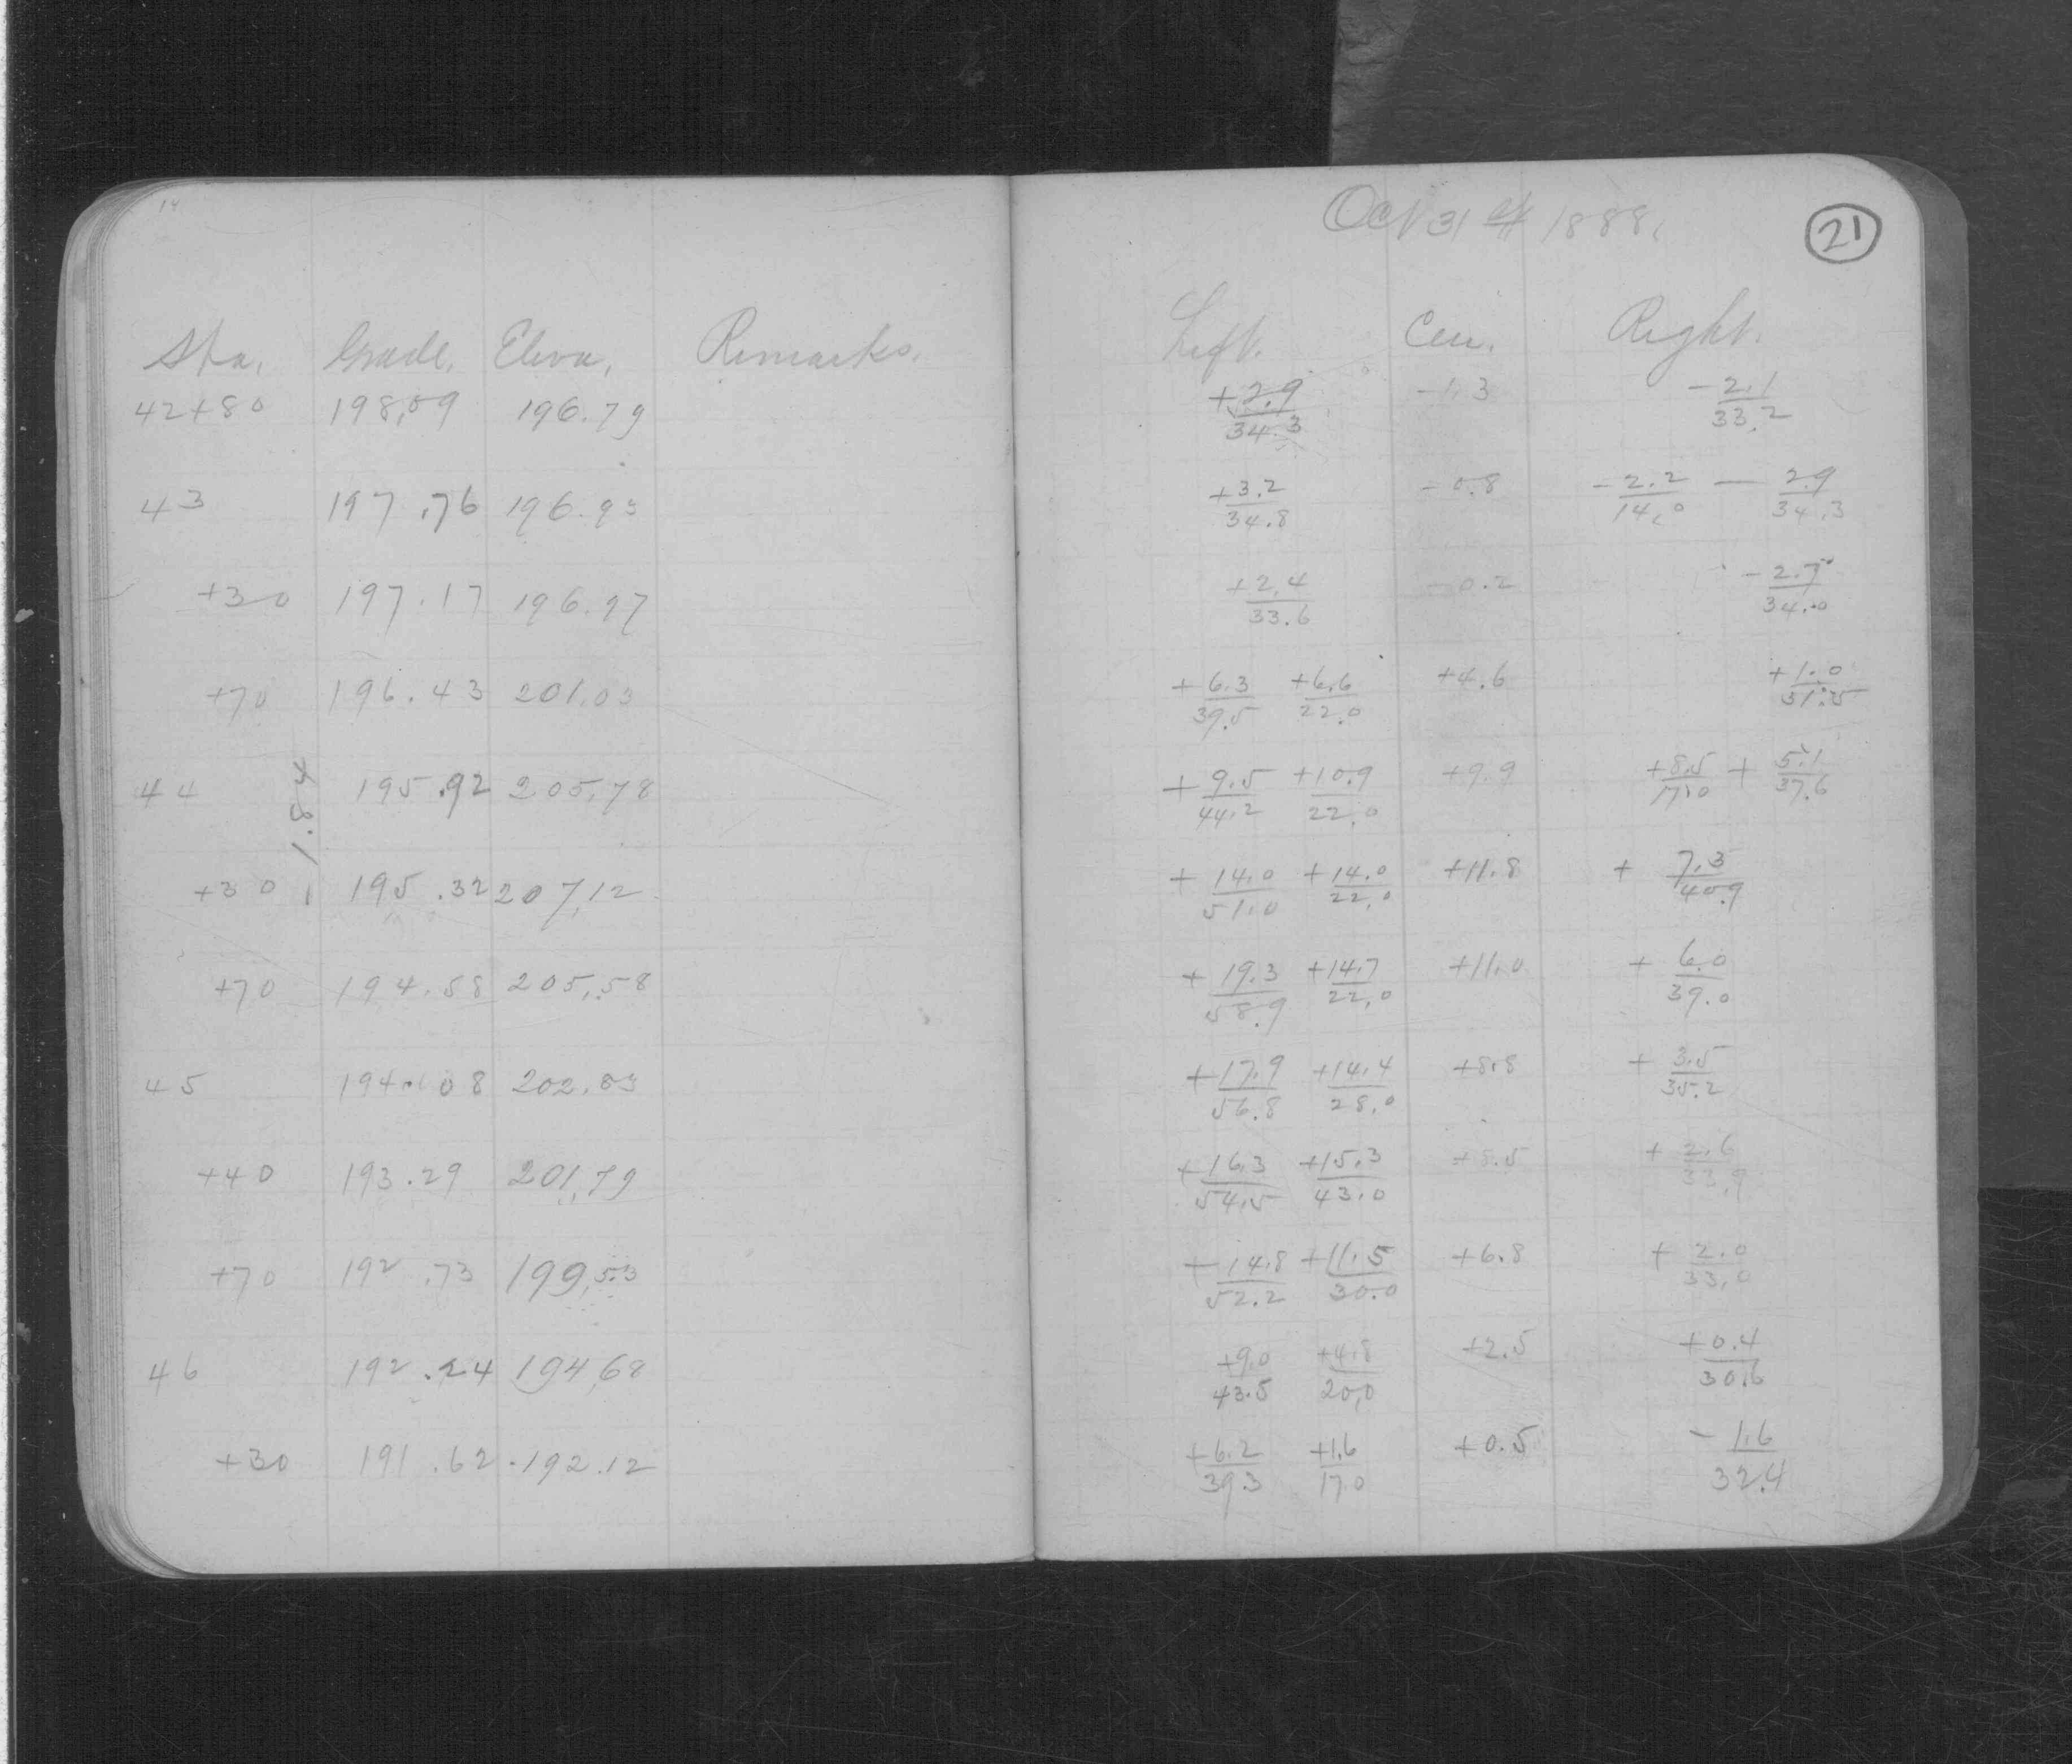 14
Sta. Grade. Eleva. Remarks.
42+80 198.09 196.79
43 197.76 196.93
+30 197.17 196.97
+70 196.43 201.03
44 195.92 205.78
1.84
+30 195.32 207.12
+70 194.58 205.58
45 194.08 202.83
+40 193.29 201.79
+70 192.73 199.53
46 192.24 194.68
+30 191.62 192.12
Oct 31st 1888.
21
Left. Cen. Right.
+2.9/34.3 -1.3 -2.1/33.2
+3.2/34.8 -0.8 -2.2/14.0 - 2.9/34.3
+2.4/33.6 -0.2 -2.7/34.0
+6.3/39.5 +6.6/22.0 +4.6 +1.0/31.5
+9.5/44.2 +10.9/22.0 +9.9 +8.5/17.0 + 5.1/37.6
+14.0/51.0 +14.0/22.0 +11.8 + 7.3/40.9
+19.3/58.9 +14.7/22.0 +11.0 + 6.0/39.0
+17.9/56.8 +14.4/28.0 +8.8 + 3.5/35.2
+16.3/54.5 +15.3/43.0 +8.5 + 2.6/33.9
+14.8/52.2 +11.5/30.0 +6.8 + 2.0/33.0
+9.0/43.5 +4.8/20.0 +2.5 +0.4/30.6
+6.2/39.3 +1.6/17.0 +0.5 -1.6/32.4